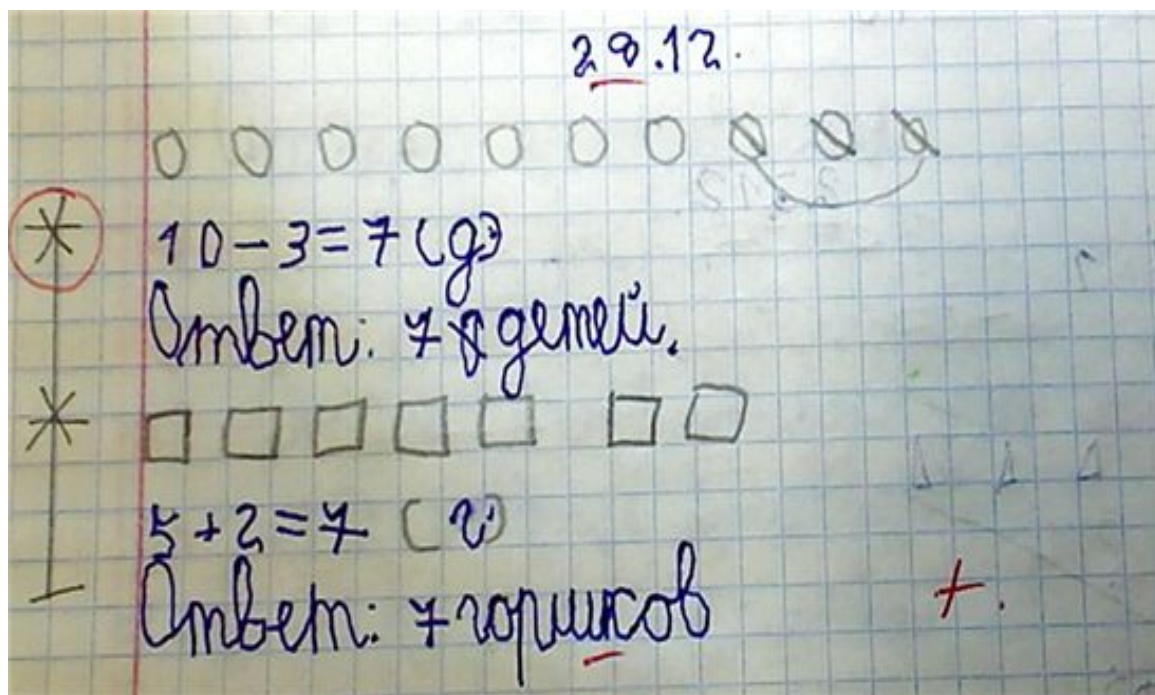 28.12.
10-3=7(д)
Ответ: 7 детей.
5+2=7 (г)
Ответ: 7 горшков
+.